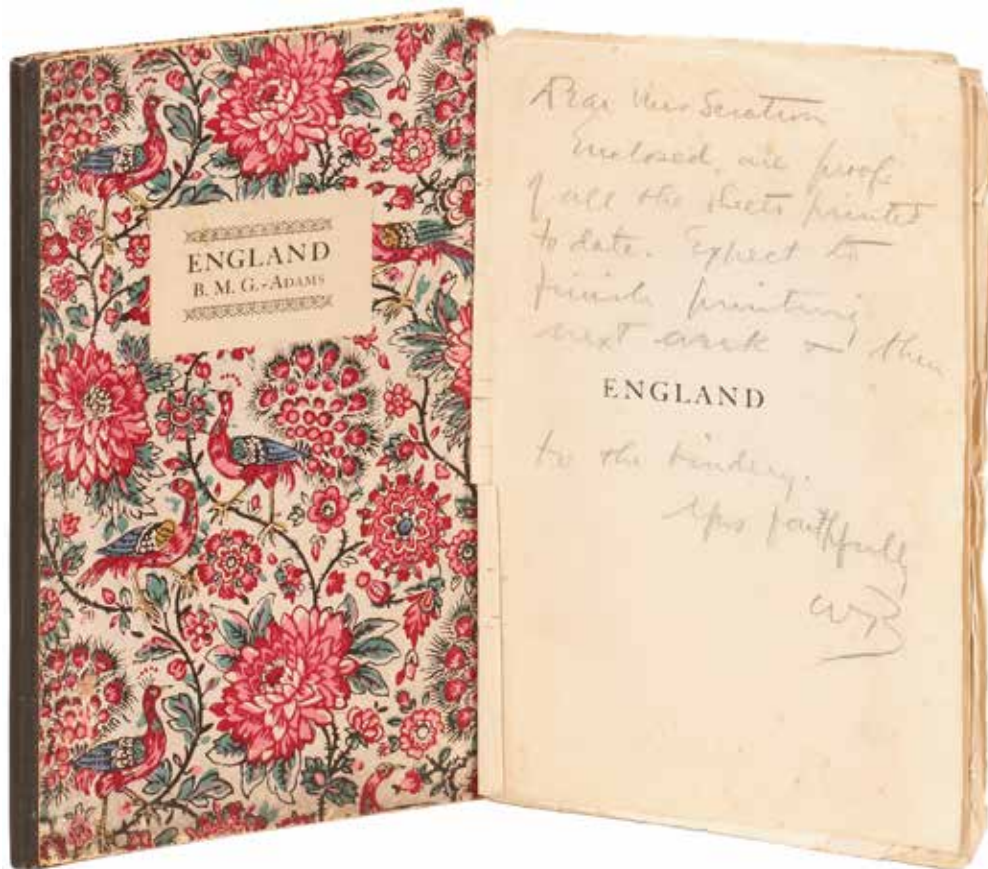 ENGLAND
B. M. G.-ADAMS
Dear Miss
Enclosed, are proofs
of all the sheets printed
to date. Expect to
finish printing
next week & then
ENGLAND
to the bindery.
Yrs faithfully
WB